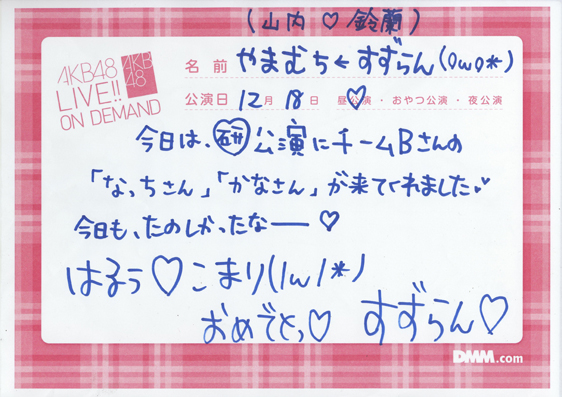 (山内♡鈴蘭)
AKB48
LIVE!!
ON DEMAND
AKB
48
名前 やまむち←すずらん(OwO*)
公演日 12月18日 昼公演・おやつ公演・夜公演
♡
今日は、研公演にチームBさんの
「なっちさん」「かなさん」が来てくれました♥
今日も、たのしかったなー♡
はるぅ♡こまり(1w1*)
おめでとっ♡ すずらん♡
DMM.com